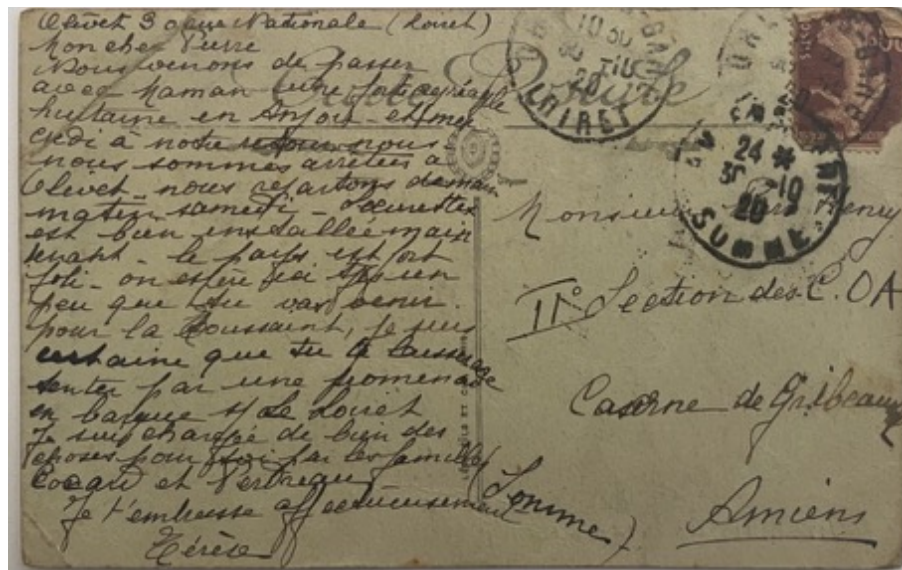 Olivet 3 Nationale (Loiret)
Mon cher Pierre
Nous venons de passer
avec Maman une fort agréable
huitaine en Anjou et mer
credi à notre retour nous
nous sommes arrêtées à
Olivet. nous repartons demain
matin samedi.
est bien installée main
tenant. le pays est fort
joli. on espère ici un
peu que tu vas venir
pour la Toussaint, je suis
certaine que tu te laisserais
tenter par une promenade
en barque s/ le Loiret
Je suis chargée de bien des
choses pour toi par les familles
Cocard et
Je t'embrasse affectueusement
Térèse
Carte Postale
LOIRET
10 30
30
20
24
30 -10
20
SOMME
Monsieur
II° Section des C.O.A
Caserne de
Amiens
(Somme)